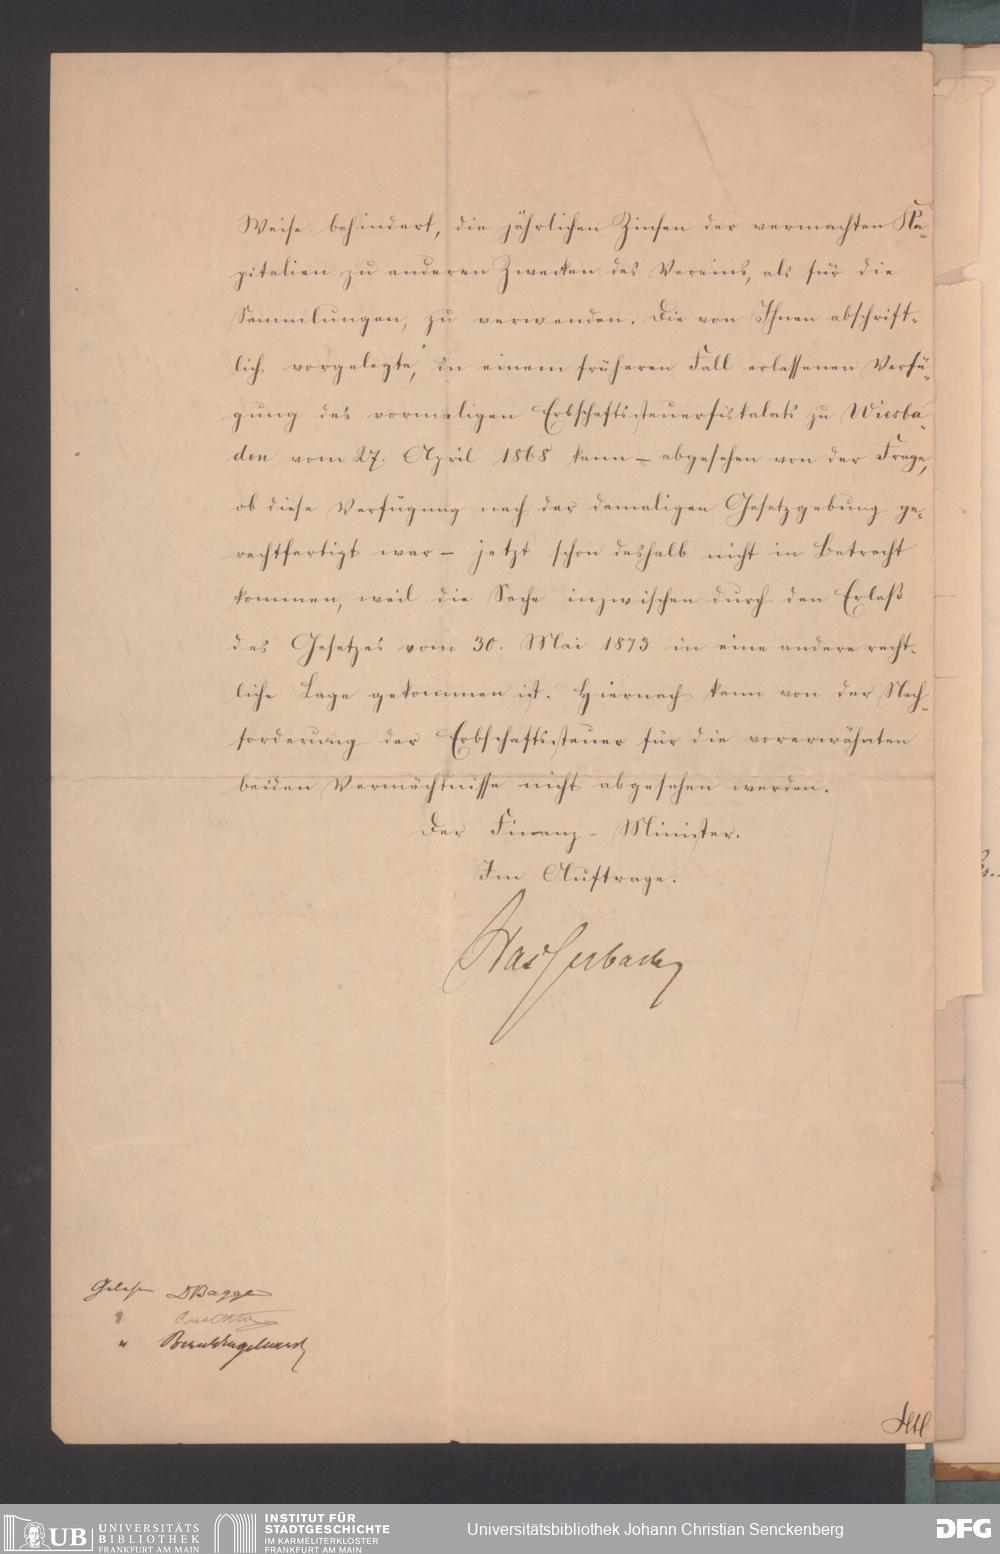 Weise behindert, die jährlichen Zinsen der vermachten Ka-
pitalien zu anderen Zwecken des Vereins, als für die
Sammlungen, zu verwenden. Die von Ihnen abschrift-
lich vorgelegte, in einem früheren Fall erlassenen Verfü-
gung des vormaligen Erbschaftssteuerfiskalats zu Wiesba-
den vom 27. April 1868 kann – abgesehen von der Frage,
ob diese Verfügung nach der damaligen Gesetzgebung ge-
rechtfertigt war – jetzt schon deshalb nicht in Betracht
kommen, weil die Sache inzwischen durch den Erlaß
des Gesetzes vom 30. Mai 1873 in eine andere recht-
liche Lage gekommen ist. Hiernach kann von der Nach-
forderung der Erbschaftssteuer für die vorerwähnten
beiden Vermächtnisse nicht abgesehen werden.
Der Finanz-Minister.
Im Auftrage.
Gelesen DBagge
"
"
UB UNIVERSITÄTS
BIBLIOTHEK
FRANKFURT AM MAIN
INSTITUT FÜR
STADTGESCHICHTE
IM KARMELITERKLOSTER
FRANKFURT AM MAIN
Universitätsbibliothek Johann Christian Senckenberg
DFG